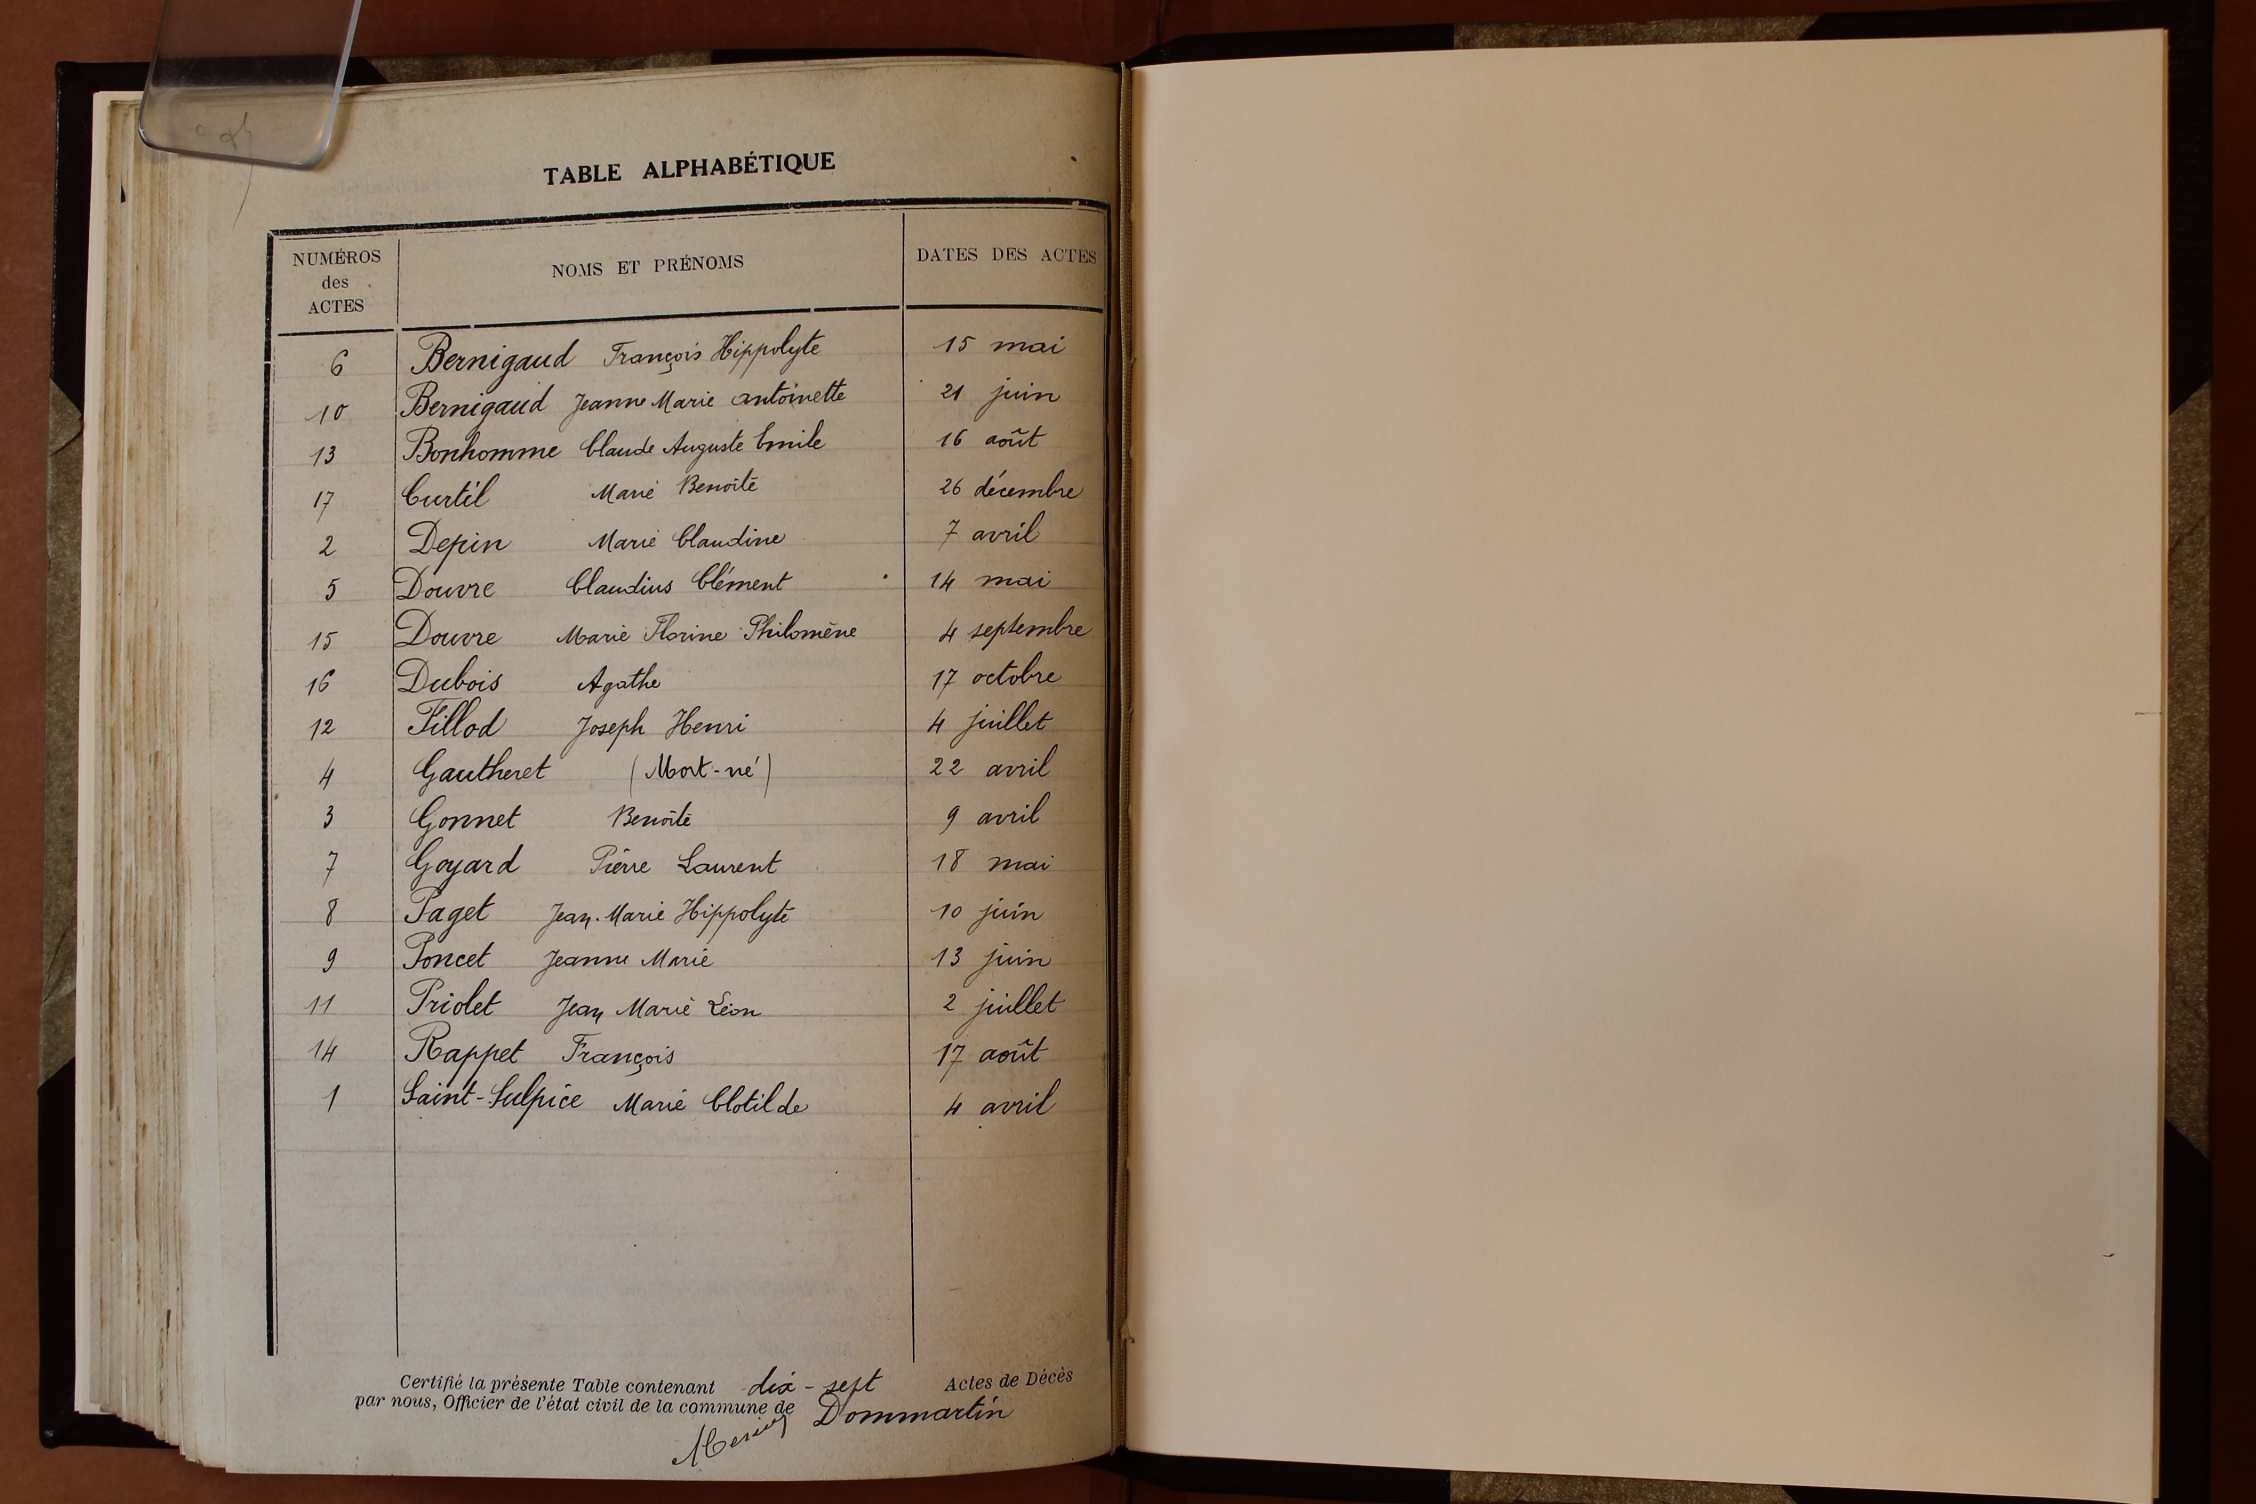 TABLE ALPHABÉTIQUE
NUMÉROS des ACTES NOMS ET PRÉNOMS DATES DES ACTES
6 Bernigaud François Hippolyte 15 mai
10 Bernigaud Jeanne Marie Antoinette 21 juin
13 Bonhomme Claude Auguste Emile 16 août
17 Curtil Marie Benoîte 26 décembre
2 Depin Marie Claudine 7 avril
5 Douvre Claudius Clément 14 mai
15 Douvre Marie Florine Philomène 4 septembre
16 Dubois Agathe 17 octobre
12 Fillod Joseph Henri 4 juillet
4 Gautheret (Mort-né) 22 avril
3 Gonnet Benoîte 9 avril
7 Goyard Pierre Laurent 18 mai
8 Paget Jean-Marie Hippolyte 10 juin
9 Poncet Jeanne Marie 13 juin
11 Priolet Jean Marie Léon 2 juillet
14 Rappet François 17 août
1 Saint-Sulpice Marie Clotilde 4 avril
Certifié la présente Table contenant dix-sept Actes de Décès
par nous, Officier de l'état civil de la commune de Dommartin